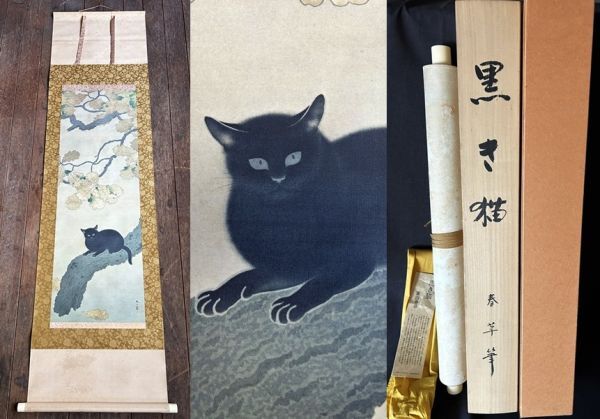 黒き猫
春草筆